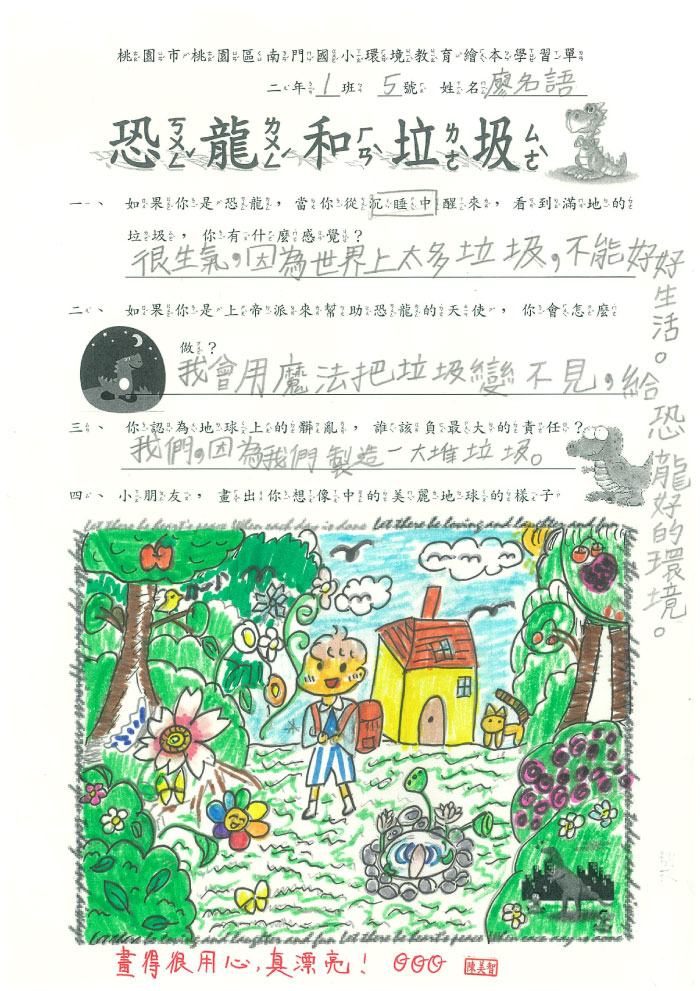 桃園市桃園區南門國小環境教育繪本學習單
二年 1 班 5 號 姓名 廖名語
恐龍和垃圾
一、如果你是恐龍，當你從沉睡中醒來，看到滿地的
垃圾，你有什麼感覺？
很生氣，因為世界上太多垃圾，不能好好生活。
二、如果你是上帝派來幫助恐龍的天使，你會怎麼
做？
我會用魔法把垃圾變不見，給恐龍好的環境。
三、你認為地球上的髒亂，誰該負最大的責任？
我們，因為我們製造一大堆垃圾。
四、小朋友，畫出你想像中的美麗地球的樣子
Let there be heart's peace When each day is done Let there be loving and laughter and fun
Let there be loving and laughter and fun Let there be heart's peace When each day is done
畫得很用心，真漂亮！
陳美智